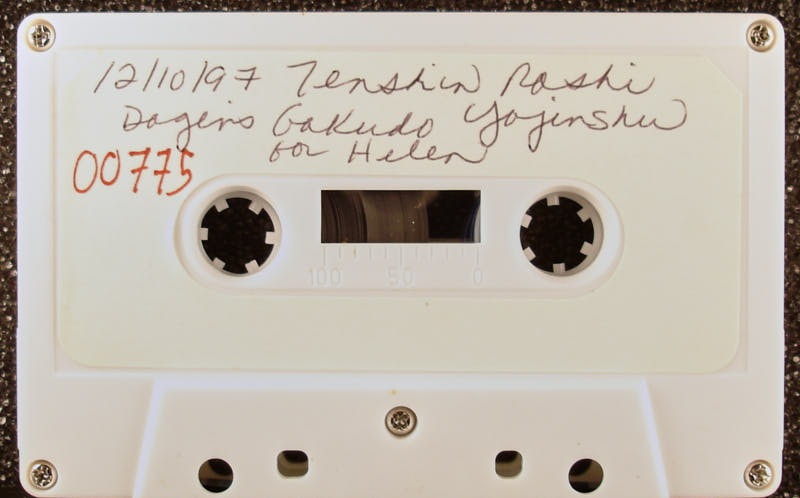 12/10/97 Tenshin Roshi
Dogens Gakudo Yojinshu
for Helen
00775
100 50 0